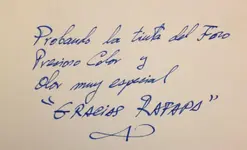 Probando la tinta del Foro
Precioso Color y
Olor muy especial
"GRACIAS RAPAPA"